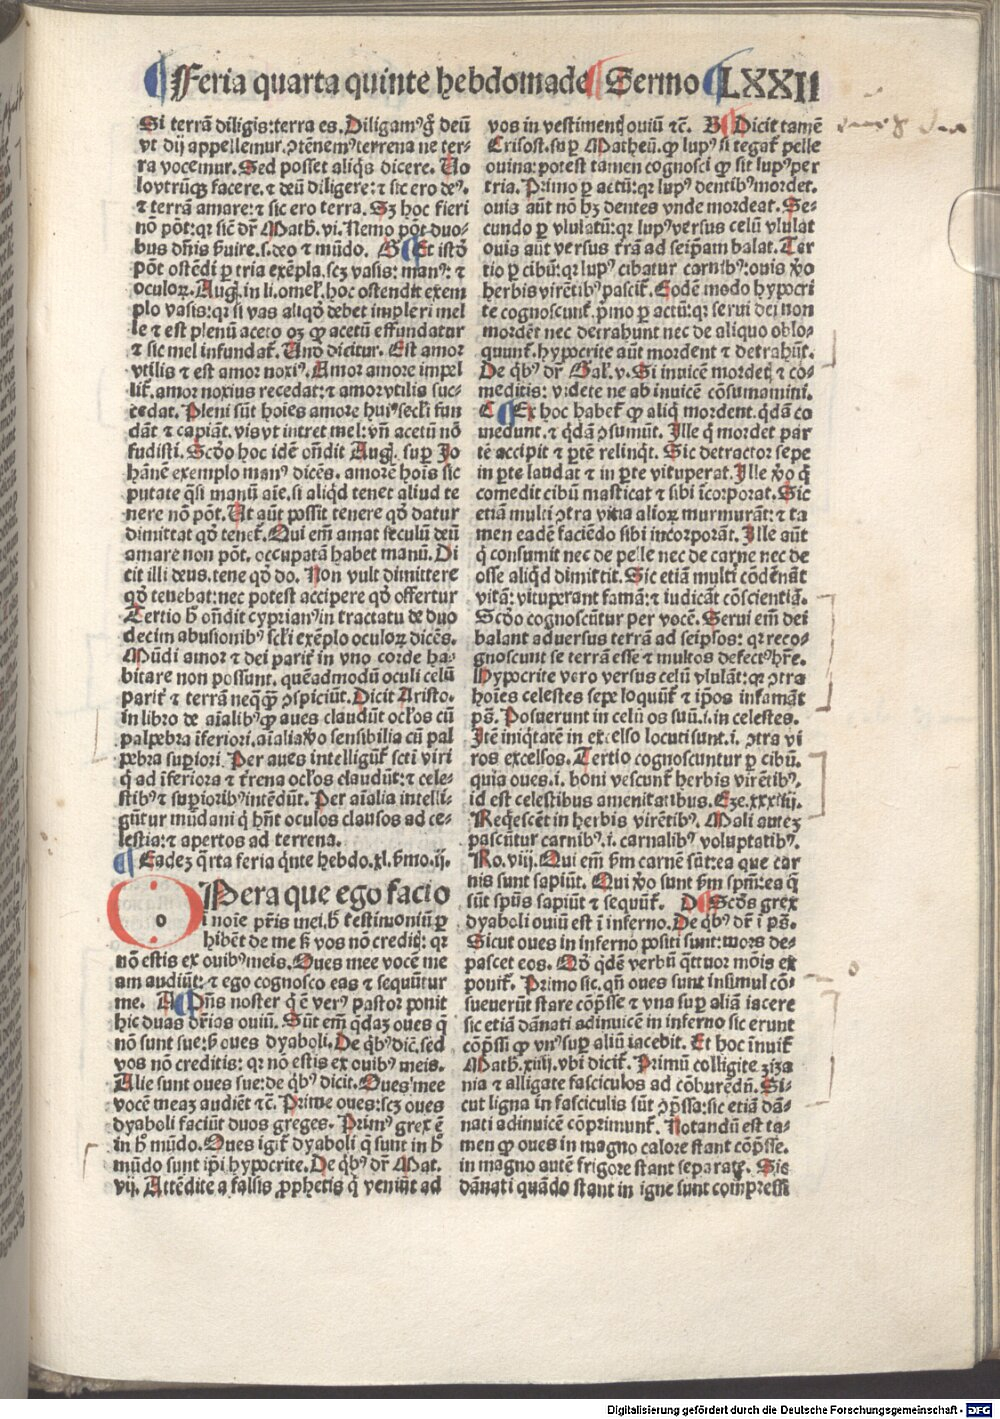 Feria quarta quinte hebdomade Sermo LXXII
Si terrā diligis:terra es.Diligamꝰ g̃ deū
vt dij appellemur.ↄtēnemꝰterrena ne ter-
ra vocemur.Sed posset aliq̄s dicere. Uo
lo vtrūqꝫ facere.⁊ deū diligere:⁊ sic ero deꝰ.
⁊ terrā amare:⁊ sic ero terra. Sꝫ hoc fieri
nō pōt:qꝛ sic̄ dr̄ Math.vi.Nemo pōt duo-
bus dn̄is ẜuire.s.deo ⁊ mūdo. B Et istō
pōt ostēdi ꝑ tria exēpla.scꝫ vasis: manꝰ: ⁊
oculoꝝ.Aug.in li.omel̓.hoc ostendit exem
plo vasis:qꝛ si vas aliqō debet impleri mel
le ⁊ est plenū aceto oꝫ ꝙ acetū effundatur
⁊ sic mel infundat̄.Und̄ dicitur. Est amor
vtilis ⁊ est amor noxiꝰ.Amor amore impel
lit̄.amor noxius recedat:⁊ amor vtilis suc-
cedat.Pleni sūt hoīes amore huiꝰ secl̓i fun
dāt ⁊ capiāt.vis vt intret mel: vn̄ acetū nō
fudisti. Scd̓o hoc idē on̄dit Aug. suꝑ Jo
hānē exemplo manꝰ dicēs. amorē hoīs sic
putate q̄si manū aīe.si aliqd tenet aliud te
nere nō pōt.Ut aūt possit tenere qō datur
dimittat qō tenet̄.Qui em̄ amat seculū deū
amare non pōt. occupatā habet manū. Di
cit illi deus.tene qō do. Non vult dimittere
qō tenebat:nec potest accipere qō offertur
Tertio h̄ on̄dit cyprianꝰ in tractatu de duo
decim abusionibꝰ scl̓i exēplo oculoꝝ dicēs.
Mūdi amor ⁊ dei parit̄ in vno corde ha-
bitare non possunt. quēadmodū oculi celū
parit̄ ⁊ terrā neq̄qꝙ̄ ↄspiciūt. Dicit Aristo.
in libro de aīalibꝰ ꝙ aues claudūt ocl̓os cū
palpebra īferiori.aīalia v̓o sensibilia cū pal
pebra suꝑiori. Per aues intelligūt̄ scti viri
q̄ ad īferiora ⁊ t̓rena ocl̓os claudūt:⁊ cele-
stibꝰ ⁊ suꝑioribꝰ intēdūt. Per aīalia intelli-
gūtur mūdani q̄ hn̄t oculos clausos ad ce-
lestia:⁊ apertos ad terrena.
Eadeꝫ q̄rta feria q̄nte hebdo.xl.ẜmo.ij.
OPera que ego facio
i noīe pr̄is mei.h̄ testimoniū ꝑ
hibēt de me ẜ vos nō creditꝭ: qꝛ
nō estis ex ouibꝰ meis.Oues mee vocē me
am audiūt: ⁊ ego cognosco eas ⁊ sequūtur
me. A Dn̄s noster q̄ ē verꝰ pastor ponit
hic duas dr̄ias ouiū. Sūt em̄ q̄daꝫ oues q̄
nō sunt sue:ẜ oues dyaboli.De q̄bꝰ dic̄.sed
vos nō creditis: qꝛ nō estis ex ouibꝰ meis.
Alie sunt oues sue:de q̄bꝰ dicit.Oues mee
vocē meaꝫ audiēt ⁊c̄. Prime oues:scꝫ oues
dyaboli faciūt duos greges. Primꝰ grex ē
in h̄ mūdo. Oues igit̄ dyaboli q̄ sunt in h̄
mūdo sunt ip̄i hypocrite.De q̄bꝰ dr̄ Mat.
vij. Attēdite a falsis ꝓphetis q̄ veniūt ad
vos in vestimentꝭ ouiū ⁊c̄. B Dicit tamē
Crisost.suꝑ Matheū.ꝙ lupꝰ si tegat̄ pelle
ouina:potest tamen cognosci ꝙ sit lupꝰ per
tria. Primo ꝑ actū:qꝛ lupꝰ dentibꝰ mordet.
ouis aūt nō hꝫ dentes vnde mordeat. Se-
cundo ꝑ vlulatū:qꝛ lupꝰ versus celū vlulat
ouis aūt versus t̓rā ad seip̄am balat. Ter
tio ꝑ cibū:qꝛ lupꝰ cibatur carnibꝰ:ouis v̓o
herbis virētibꝰ pascit̄. Eodē modo hypocri
te cognoscunt̄. pͥmo ꝑ actū:qꝛ serui dei non
mordēt nec detrahunt nec de aliquo oblo-
quunt̄.hypocrite aūt mordent ⁊ detrahūt.
De q̄bꝰ dr̄ Gal̓.v. Si inuicē mordetꝭ ⁊ co-
meditis: videte ne ab inuicē cōsumamini.
C Ex hoc habet̄ ꝙ aliq̄ mordent. q̄dā co
medunt.⁊ q̄dā ↄsumūt. Ille q̄ mordet par
tē accipit ⁊ ꝑtē relinqt. Sic detractor sepe
in ꝑte laudat ⁊ in ꝑte vituperat. Ille v̓o q̄
comedit cibū masticat ⁊ sibi īcorporat. Sic
etiā multi ↄtra vitia alioꝝ murmurāt: ⁊ ta
men eadē faciēdo sibi incorporāt. Ille aūt
q̄ consumit nec de pelle nec de carne nec de
osse aliqd dimittit. Sic etiā multi cōdēnāt
vitā: vituperant famā:⁊ iudicāt cōscientiā.
Scd̓o cognoscūtur per vocē. Serui em̄ dei
balant aduersus terrā ad seipsos: qꝛ reco-
gnoscunt se terrā esse ⁊ multos defectꝰ hr̄e.
Hypocrite vero versus celū vlulāt: qꝛ ↄtra
hoīes celestes sepe loquūt̄ ⁊ ip̄os infamāt
ps̄. Posuerunt in celū os suū.i.in celestes.
Itē iniq̄tatē in excelso locuti sunt.i. ↄtra vi
ros excelsos. Tertio cognoscuntur ꝑ cibū.
quia oues.i. boni vescunt̄ herbis virētibꝰ.
id est celestibus amenitatibus.Eze.xxxiiij.
Reqescēt in herbis virētibꝰ. Mali auteꝫ
pascūtur carnibꝰ.i. carnalibꝰ voluptatibꝰ.
Ro.viij.Qui em̄ ẜm carnē sūt:ea que car
nis sunt sapiūt. Qui v̓o sunt ẜm spm̄:ea q̄
sūt spūs sapiūt ⁊ sequūt̄. D Scd̓s grex
dyaboli ouiū est ī inferno.De q̄bꝰ dr̄ ī ps̄.
Sicut oues in inferno positi sunt:mors de-
pascet eos. Qō q̄dē verbū q̄ttuor mōis ex
ponit̄. Primo sic.qn̄ oues sunt insimul cō-
sueuerūt stare cōp̄sse ⁊ vna suꝑ aliā iacere
sic etiā dānati adinuicē in inferno sic erunt
cōp̄ssi ꝙ vnꝰ suꝑ aliū iacebit. Et hoc īnuit̄
Math.xiij.vbi dicit̄. Primū colligite ziza
nia ⁊ alligate fasciculos ad cōburēdū. Si-
cut ligna in fasciculis sūt ꝯp̄ssa:sic etiā dā-
nati adinuicē cōprimunt̄. Notandū est ta-
men ꝙ oues in magno calore stant cōp̄sse.
in magno autē frigore stant separate. Sic
dānati quādo stant in igne sunt compressi
Digitalisierung gefördert durch die Deutsche Forschungsgemeinschaft - DFG